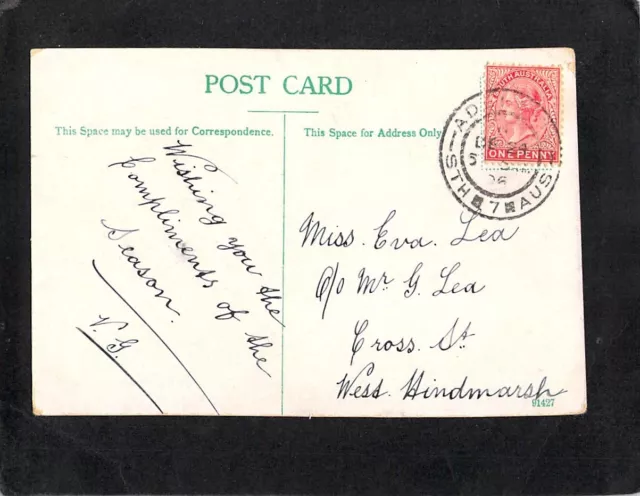 POST CARD
This Space may be used for Correspondence.
This Space for Address Only
Wishing you the
Compliments of the
Season.
V. G.
SOUTH AUSTRALIA
ONE PENNY
AD
DE 24
06
STH 7 AUS
Miss. Eva. Lea
c/o Mr G. Lea
Cross. St.
West. Hindmarsh
91427